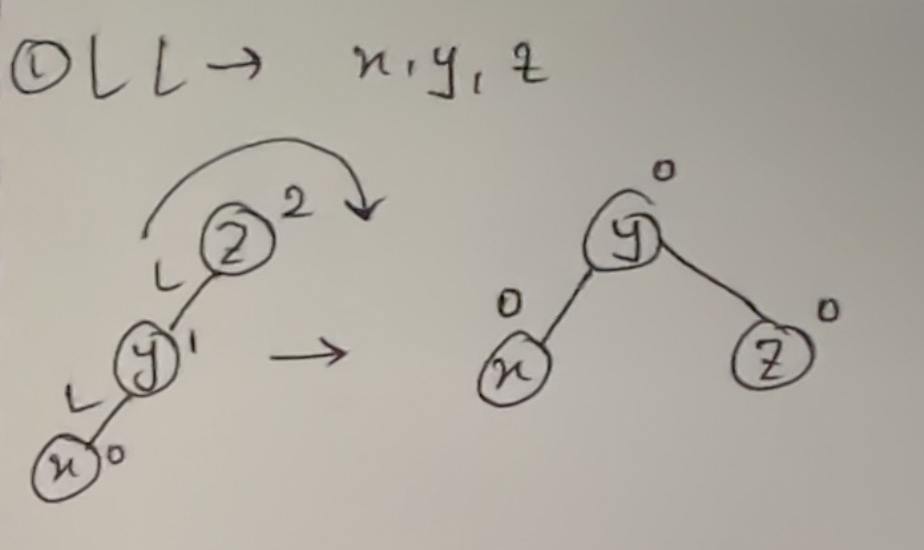 ① L L → x, y, z
z 2
L
y 1
L
x 0
→
y 0
0 x
z 0